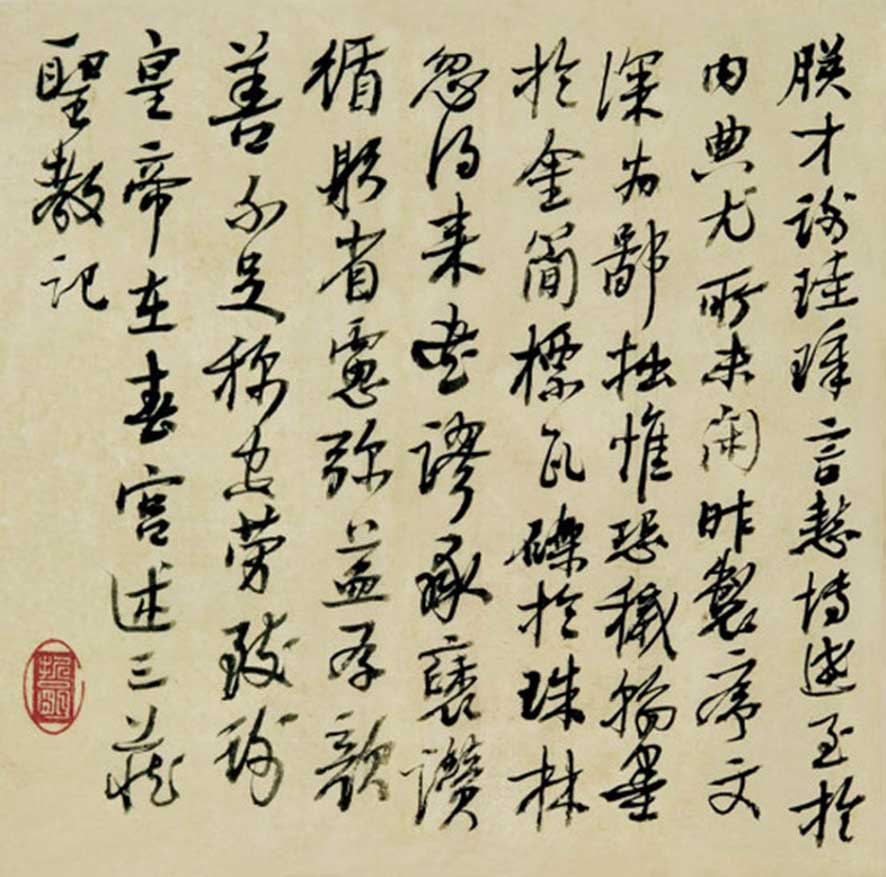 朕才謝珪璋言慙博達至於
內典尤所未閑昨製序文
深為鄙拙惟恐穢翰墨
於金簡標瓦礫於珠林
忽得来書謬承褒讚
循躬省慮弥益厚顏
善不足稱空勞致謝
皇帝在春宮述三藏
聖教記